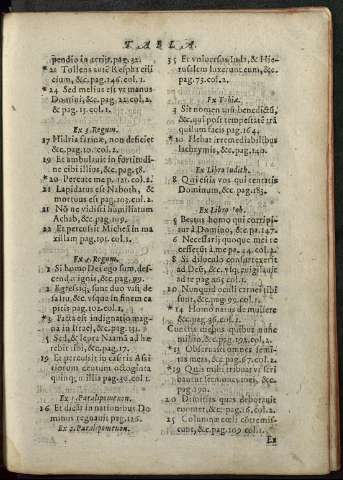 TABLA
pendio in terris, pag. 32.
*21 Tollens autē Respha cili
cium, &c. pag. 146. col. 1.
*24 Sed melius est vt manus
Domini, &c. pag. 22. col. 2.
& pag. 15. col. 1.
Ex 3. Regum.
17 Hidria farinæ, non deficiet
&c. pag. 10. col. 2.
19 Et ambulauit in fortitudi-
ne cibi illius, &c. pag. 58.
*20 Percute me p. 121. col. 2.
21 Lapidatus est Naboth, &
mortuus est pag. 103. col. 2.
21 Nōne vidisti humiliatum
Achab, &c. pag. 109.
22 Et percussit Micheā in ma
xillam pag. 191. col. 1.
Ex 4. Regum.
1 Si homo Dei ego sum, des-
cendat ignis, &c. pag. 99.
2 Egressiq; sunt duo vrsi de
saltu, &c. vsque in finem ca
pitis pag. 102. col. 2.
*3 Facta est indignatio mag-
na in Israel, &c. pag. 131.
5 Sed, & lepra Naamā ad hæ
rebit tibi, &c. pag. 17.
19 Et percussit in castris Assi
riorum centum octoginta
quinq; millia pag. 30. col. 1.
Ex 1. Paralipomenon.
16 Et dicāt in nationibus Do
minus regnauit pag. 126.
Ex 2. Paralipomenon.
35 Et vniuersus Iuda, & Hie-
rusalem luxerunt eum, &c.
pag. 73. col. 2.
Ex Tobiæ.
3 Sit nomen tuū benedictū,
&c. qui post tempestatē trā
quilum facis pag. 164.
*10 Flebat irremediabilibus
lachrymis, &c. pag. 140.
Ex Libro Iudith.
8 Qui estis vos qui tentatis
Dominum, &c. pag. 183.
Ex Libro Iob.
5 Beatus homo qui corripi-
tur à Domino, &c. pa. 147.
6 Necessarij quoque mei re
cesserūt à me pa. 44. col. 2.
8 Si diluculo consurrexerit
ad Deū, &c. vsq; euigilauit
ad te pag. 105 col. 1.
10 Nunquid oculi carnei tibi
sunt, &c. pag. 99. col. 1.
*14 Homo natus de muliere
&c. pag. 36. col. 1.
Cunctis diebus quibus nunc
milito, &c. pag. 192. col. 2.
*13 Obseruasti omnes semi-
tas meas, &c. pag. 67. col. 2.
*19 Quis mihi tribuat vt scri
bantur sermones mei, &c.
pag. 190.
20 Diuitias quas deuorauit
euomet, &c. pag. 16. col. 2.
26 Columnæ cœli contremis-
cunt, &c. pag. 109 col. 1.
Ex